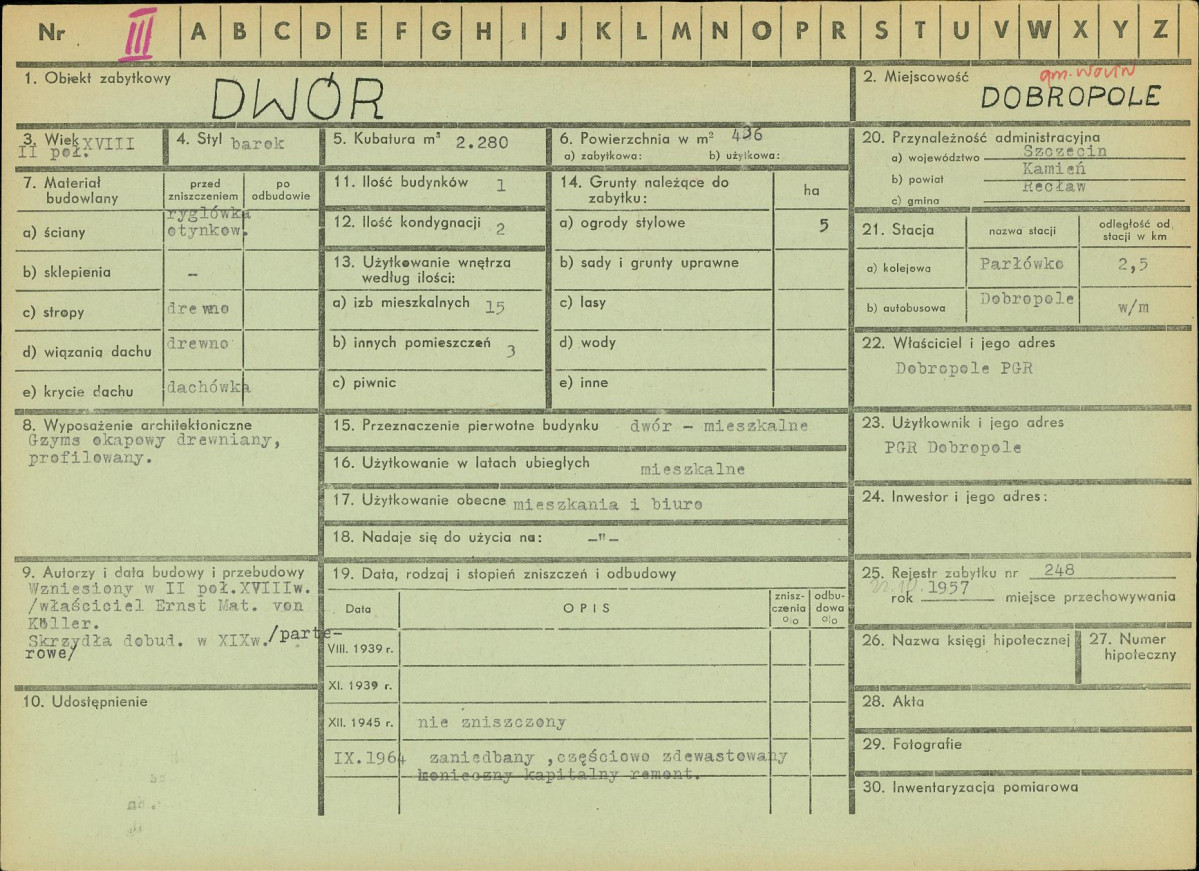 Nr III A B C D E F G H I J K L M N O P R S T U V W X Y Z
1. Obiekt zabytkowy
DWÓR
2. Miejscowość
gm. Wolin
DOBROPOLE
3. Wiek XVIII
II poł.
4. Styl barok
5. Kubatura m³ 2.280
6. Powierzchnia w m² 436
a) zabytkowa: b) użytkowa:
7. Materiał budowlany
przed zniszczeniem
po odbudowie
a) ściany
ryglówka
otynkow.
b) sklepienia –
c) stropy drewno
d) wiązania dachu drewno
e) krycie dachu dachówka
8. Wyposażenie architektoniczne
Gzyms okapowy drewniany,
profilowany.
9. Autorzy i data budowy i przebudowy
Wzniesiony w II poł.XVIIIw.
/właściciel Ernst Mat. von
Köller.
Skrzydła dobud. w XIXw./parte-
rowe/
10. Udostępnienie
11. Ilość budynków 1
12. Ilość kondygnacji 2
13. Użytkowanie wnętrza
według ilości:
a) izb mieszkalnych 15
b) innych pomieszczeń 3
c) piwnic
14. Grunty należące do
zabytku:
ha
a) ogrody stylowe 5
b) sady i grunty uprawne
c) lasy
d) wody
e) inne
15. Przeznaczenie pierwotne budynku dwór – mieszkalne
16. Użytkowanie w latach ubiegłych mieszkalne
17. Użytkowanie obecne mieszkania i biuro
18. Nadaje się do użycia na: –"–
19. Data, rodzaj i stopień zniszczeń i odbudowy
Data
OPIS
znisz-
czenia
%
odbu-
dowa
%
VIII. 1939 r.
XI. 1939 r.
XII. 1945 r. nie zniszczony
IX.1964 zaniedbany ,częściowo zdewastowany
konieczny kapitalny remont.
20. Przynależność administracyjna
a) województwo Szczecin
b) powiat Kamień
c) gmina Recław
21. Stacja
nazwa stacji
odległość od
stacji w km
a) kolejowa Parłówko 2,5
b) autobusowa Dobropole w/m
22. Właściciel i jego adres
Dobropole PGR
23. Użytkownik i jego adres
PGR Dobropole
24. Inwestor i jego adres:
25. Rejestr zabytku nr 248
rok 1957 miejsce przechowywania
26. Nazwa księgi hipotecznej
27. Numer
hipoteczny
28. Akta
29. Fotografie
30. Inwentaryzacja pomiarowa